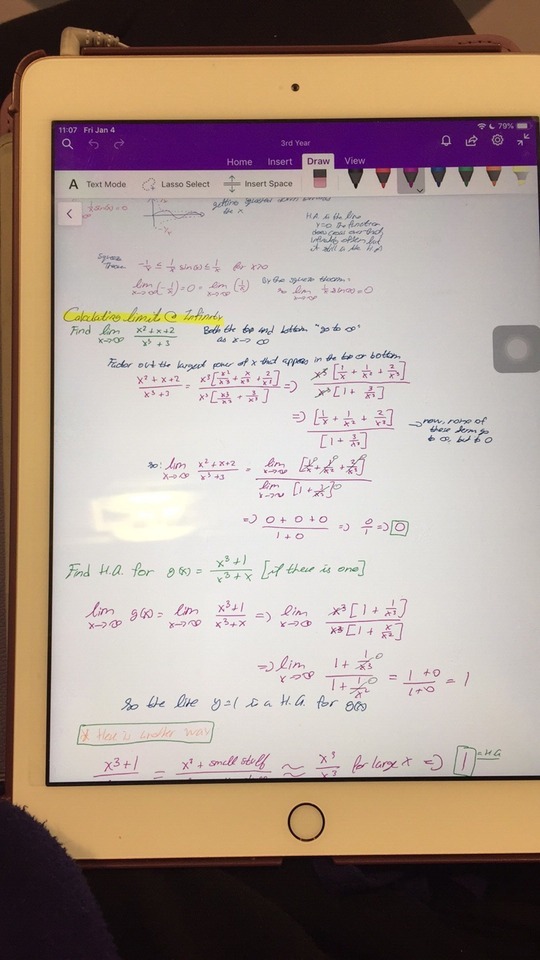 11:07 Fri Jan 4
79%
3rd Year
Home Insert Draw View
A Text Mode Lasso Select Insert Space
the x
H.A is the line
y=0 the function
Squeeze
Thrm: -1/x ≤ 1/x sin(x) ≤ 1/x for x>0
lim x→∞ (-1/x) = 0 = lim x→∞ (1/x) By the squeeze theorem
so lim x→∞ 1/x sin(x) = 0
Calculating limits @ Infinity
Find lim x→∞ (x²+x+2)/(x³+3) Both the top and bottom "go to ∞"
as x→∞
Factor out the largest power of x that appears in the top or bottom
(x²+x+2)/(x³+3) = x³[x²/x³ + x/x³ + 2/x³] / x³[x³/x³ + 3/x³] => x³[1/x + 1/x² + 2/x³] / x³[1 + 3/x³]
=> [1/x + 1/x² + 2/x³] / [1 + 3/x³] → now, none of
these terms go
to ∞, but to 0
so: lim x→∞ (x²+x+2)/(x³+3) = lim x→∞ [1/x + 1/x² + 2/x³] / lim x→∞ [1 + 3/x³]
=> (0+0+0)/(1+0) => 0/1 => 0
Find H.A. for g(x) = (x³+1)/(x³+x) [if there is one]
lim x→∞ g(x) = lim x→∞ (x³+1)/(x³+x) => lim x→∞ x³[1 + 1/x³] / x³[1 + x/x²]
=> lim x→∞ (1 + 1/x³)/(1 + 1/x²) = (1+0)/(1+0) = 1
So the line y=1 is a H.A. for g(x)
* Here is another way
x³+1 = x³ + small stuff ≈ x³/x³ for large x => 1 = H.A